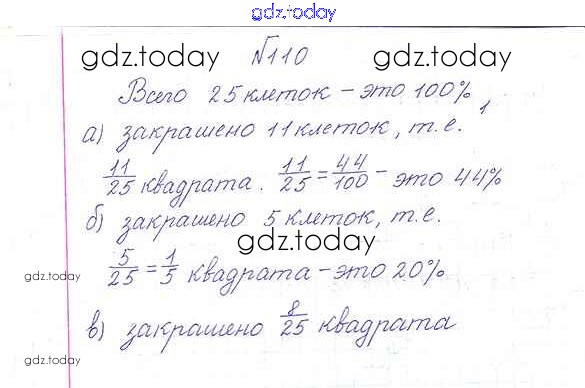 gdz.today
gdz.today №110 gdz.today
Всего 25 клеток – это 100%,
а) закрашено 11 клеток, т.е.
11/25 квадрата. 11/25 = 44/100 – это 44%
б) закрашено 5 клеток, т.е.
gdz.today
gdz.today 5/25 = 1/5 квадрата – это 20%
в) закрашено 8/25 квадрата
gdz.today